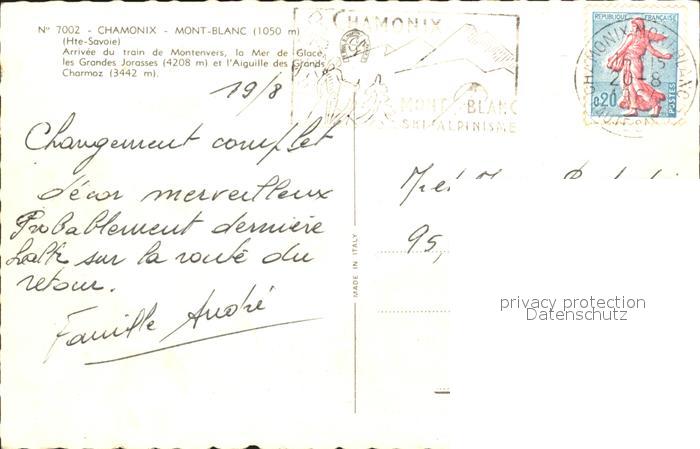 N° 7002 - CHAMONIX - MONT-BLANC (1050 m)
(Hte-Savoie)
Arrivée du train de Montenvers, la Mer de Glace,
les Grandes Jorasses (4208 m) et l'Aiguille des Grands
Charmoz (3442 m).
CHAMONIX
MONT-BLANC
SKI-ALPINISME
REPUBLIQUE FRANÇAISE
0.20
POSTES
CHAMONIX-MONT-BLANC
20-8
19/8
Changement complet
décor merveilleux
Probablement dernière
halte sur la route du
retour.
Famille André
MADE IN ITALY
95,
privacy protection
Datenschutz